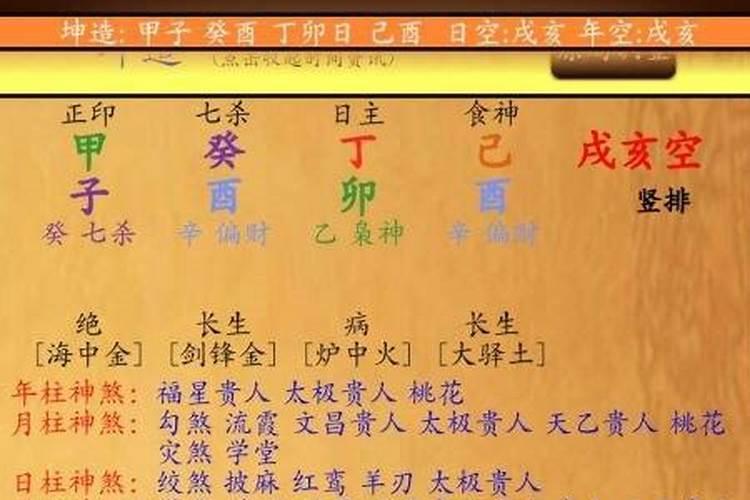 坤造: 甲子 癸酉 丁卯日 己酉 日空:戌亥 年空:戌亥
(点击收起时间资讯)
正印 七杀 日主 食神
甲 癸 丁 己 戌亥空
子 酉 卯 酉 竖排
癸 七杀 辛 偏财 乙 枭神 辛 偏财
绝 长生 病 长生
[海中金] [剑锋金] [炉中火] [大驿土]
年柱神煞: 福星贵人 太极贵人 桃花
月柱神煞: 勾煞 流霞 文昌贵人 太极贵人 天乙贵人 桃花
灾煞 学堂
日柱神煞: 绞煞 披麻 红鸾 羊刃 太极贵人